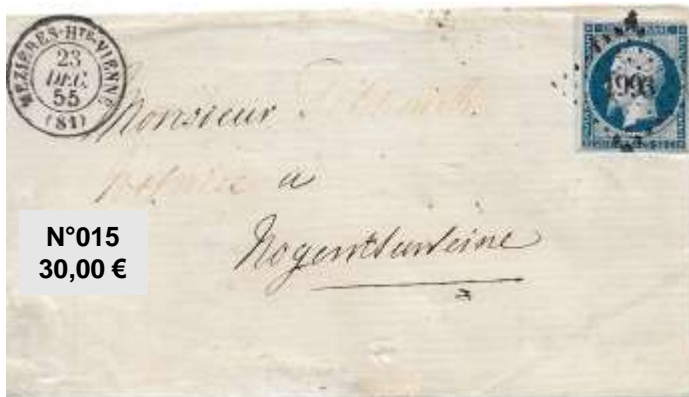 MEZIÈRES-HTE-VIENNE
23
DEC.
55
(81)
Monsieur
a
Nogent sur Seine
N°015
30,00 €